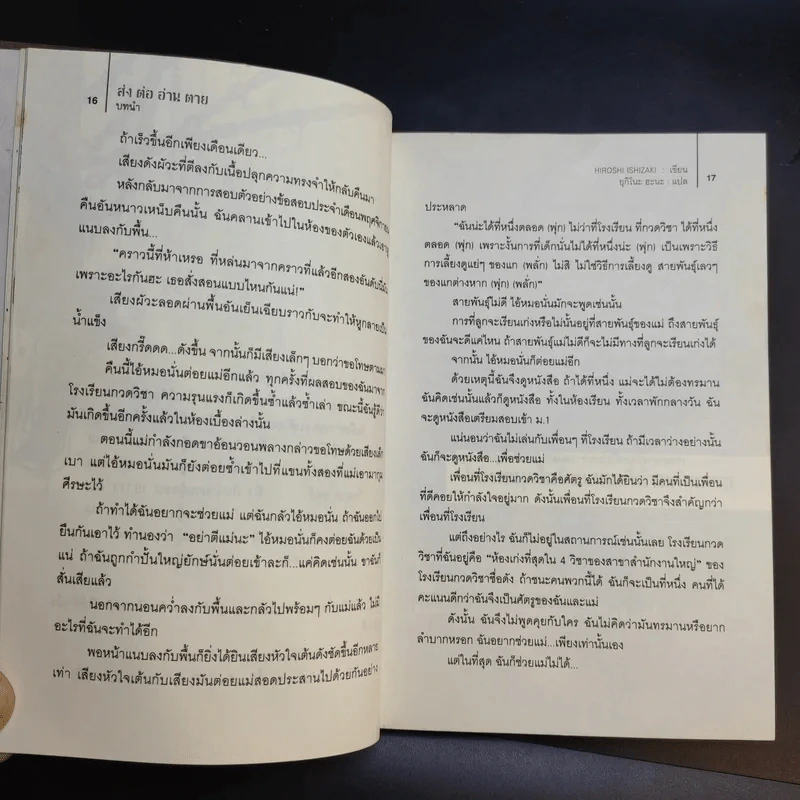 16
ส่ง ต่อ อ่าน ตาย
บทนำ
ถ้าเร็วขึ้นอีกเพียงเดือนเดียว...
เสียงดังผัวะที่ตีลงกับเนื้อปลุกความทรงจำให้กลับคืนมา
หลังกลับมาจากการสอบตัวอย่างข้อสอบประจำเดือนพฤศจิกายน
คืนอันหนาวเหน็บคืนนั้น ฉันคลานเข้าไปในห้องของตัวเองแล้ว
แนบลงกับพื้น...
"คราวนี้ที่ห้าเหรอ ที่หล่นมาจากคราวที่แล้วอีกสองอันดับนี่มัน
เพราะอะไรกันฮะ เธอสั่งสอนแบบไหนกันแน่!"
เสียงผัวะลอดผ่านพื้นอันเย็นเฉียบราวกับจะทำให้หูกลายเป็น
น้ำแข็ง
เสียงกรี๊ดดด...ดังขึ้น จากนั้นก็มีเสียงเล็กๆ บอกว่าขอโทษตามมา
คืนนี้ไอ้หมอนั่นต่อยแม่อีกแล้ว ทุกครั้งที่ผลสอบของฉันมาจาก
โรงเรียนกวดวิชา ความรุนแรงก็เกิดขึ้นซ้ำแล้วซ้ำเล่า ขณะนี้ฉันรู้ดีว่า
มันเกิดขึ้นอีกครั้งแล้วในห้องเบื้องล่างนั้น
ตอนนี้แม่กำลังกอดขาอ้อนวอนพลางกล่าวขอโทษด้วยเสียงเล็ก
เบา แต่ไอ้หมอนั่นมันก็ยังต่อยซ้ำเข้าไปที่แขนทั้งสองที่แม่เอามากุม
ศีรษะไว้
ถ้าทำได้ฉันอยากจะช่วยแม่ แต่ฉันกลัวไอ้หมอนั่น ถ้าฉันออกไป
ยืนกันเอาไว้ ทำนองว่า "อย่าตีแม่นะ" ไอ้หมอนั่นก็คงต่อยฉันด้วยเป็น
แน่ ถ้าฉันถูกกำปั้นใหญ่ยักษ์นั่นต่อยเข้าละก็...แค่คิดเช่นนั้น ขาฉันก็
สั่นเสียแล้ว
นอกจากนอนคว่ำลงกับพื้นและกลัวไปพร้อมๆ กับแม่แล้ว ไม่มี
อะไรที่ฉันจะทำได้อีก
พอหน้าแนบลงกับพื้นก็ยิ่งได้ยินเสียงหัวใจเต้นดังชัดขึ้นอีกหลาย
เท่า เสียงหัวใจเต้นกับเสียงมันต่อยแม่สอดประสานไปด้วยกันอย่าง
HIROSHI ISHIZAKI : เขียน
ยูกิโนะ ฮะนะ : แปล
17
ประหลาด
"ฉันน่ะได้ที่หนึ่งตลอด (พุ่ก) ไม่ว่าที่โรงเรียน ที่กวดวิชา ได้ที่หนึ่ง
ตลอด (พุ่ก) เพราะงั้นการที่เด็กนั่นไม่ได้ที่หนึ่งน่ะ (พุ่ก) เป็นเพราะวิธี
การเลี้ยงดูแย่ๆ ของแก (พลั่ก) ไม่สิ ไม่ใช่วิธีการเลี้ยงดู สายพันธุ์เลวๆ
ของแกต่างหาก (พุ่ก) (พลั่ก)"
สายพันธุ์ไม่ดี ไอ้หมอนั่นมักจะพูดเช่นนั้น
การที่ลูกจะเรียนเก่งหรือไม่นั้นอยู่ที่สายพันธุ์ของแม่ ถึงสายพันธุ์
ของฉันจะดีแค่ไหน ถ้าสายพันธุ์แม่ไม่ดีก็จะไม่มีทางที่ลูกจะเรียนเก่งได้
จากนั้น ไอ้หมอนั่นก็ต่อยแม่อีก
ด้วยเหตุนี้ฉันจึงดูหนังสือ ถ้าได้ที่หนึ่ง แม่จะได้ไม่ต้องทรมาน
ฉันคิดเช่นนั้นแล้วก็ดูหนังสือ ทั้งในห้องเรียน ทั้งเวลาพักกลางวัน ฉัน
จะดูหนังสือเตรียมสอบเข้า ม.1
แน่นอนว่าฉันไม่เล่นกับเพื่อนๆ ที่โรงเรียน ถ้ามีเวลาว่างอย่างนั้น
ฉันก็จะดูหนังสือ...เพื่อช่วยแม่
เพื่อนที่โรงเรียนกวดวิชาคือศัตรู ฉันมักได้ยินว่า มีคนที่เป็นเพื่อน
ที่ดีคอยให้กำลังใจอยู่มาก ดังนั้นเพื่อนที่โรงเรียนกวดวิชาจึงสำคัญกว่า
เพื่อนที่โรงเรียน
แต่ถึงอย่างไร ฉันก็ไม่อยู่ในสถานการณ์เช่นนั้นเลย โรงเรียนกวด
วิชาที่ฉันอยู่คือ "ห้องเก่งที่สุดใน 4 วิชาของสาขาสำนักงานใหญ่" ของ
โรงเรียนกวดวิชาชื่อดัง ถ้าชนะคนพวกนี้ได้ ฉันก็จะเป็นที่หนึ่ง คนที่ได้
คะแนนดีกว่าฉันจึงเป็นศัตรูของฉันและแม่
ดังนั้น ฉันจึงไม่พูดคุยกับใคร ฉันไม่คิดว่ามันทรมานหรือยาก
ลำบากหรอก ฉันอยากช่วยแม่...เพียงเท่านั้นเอง
แต่ในที่สุด ฉันก็ช่วยแม่ไม่ได้...